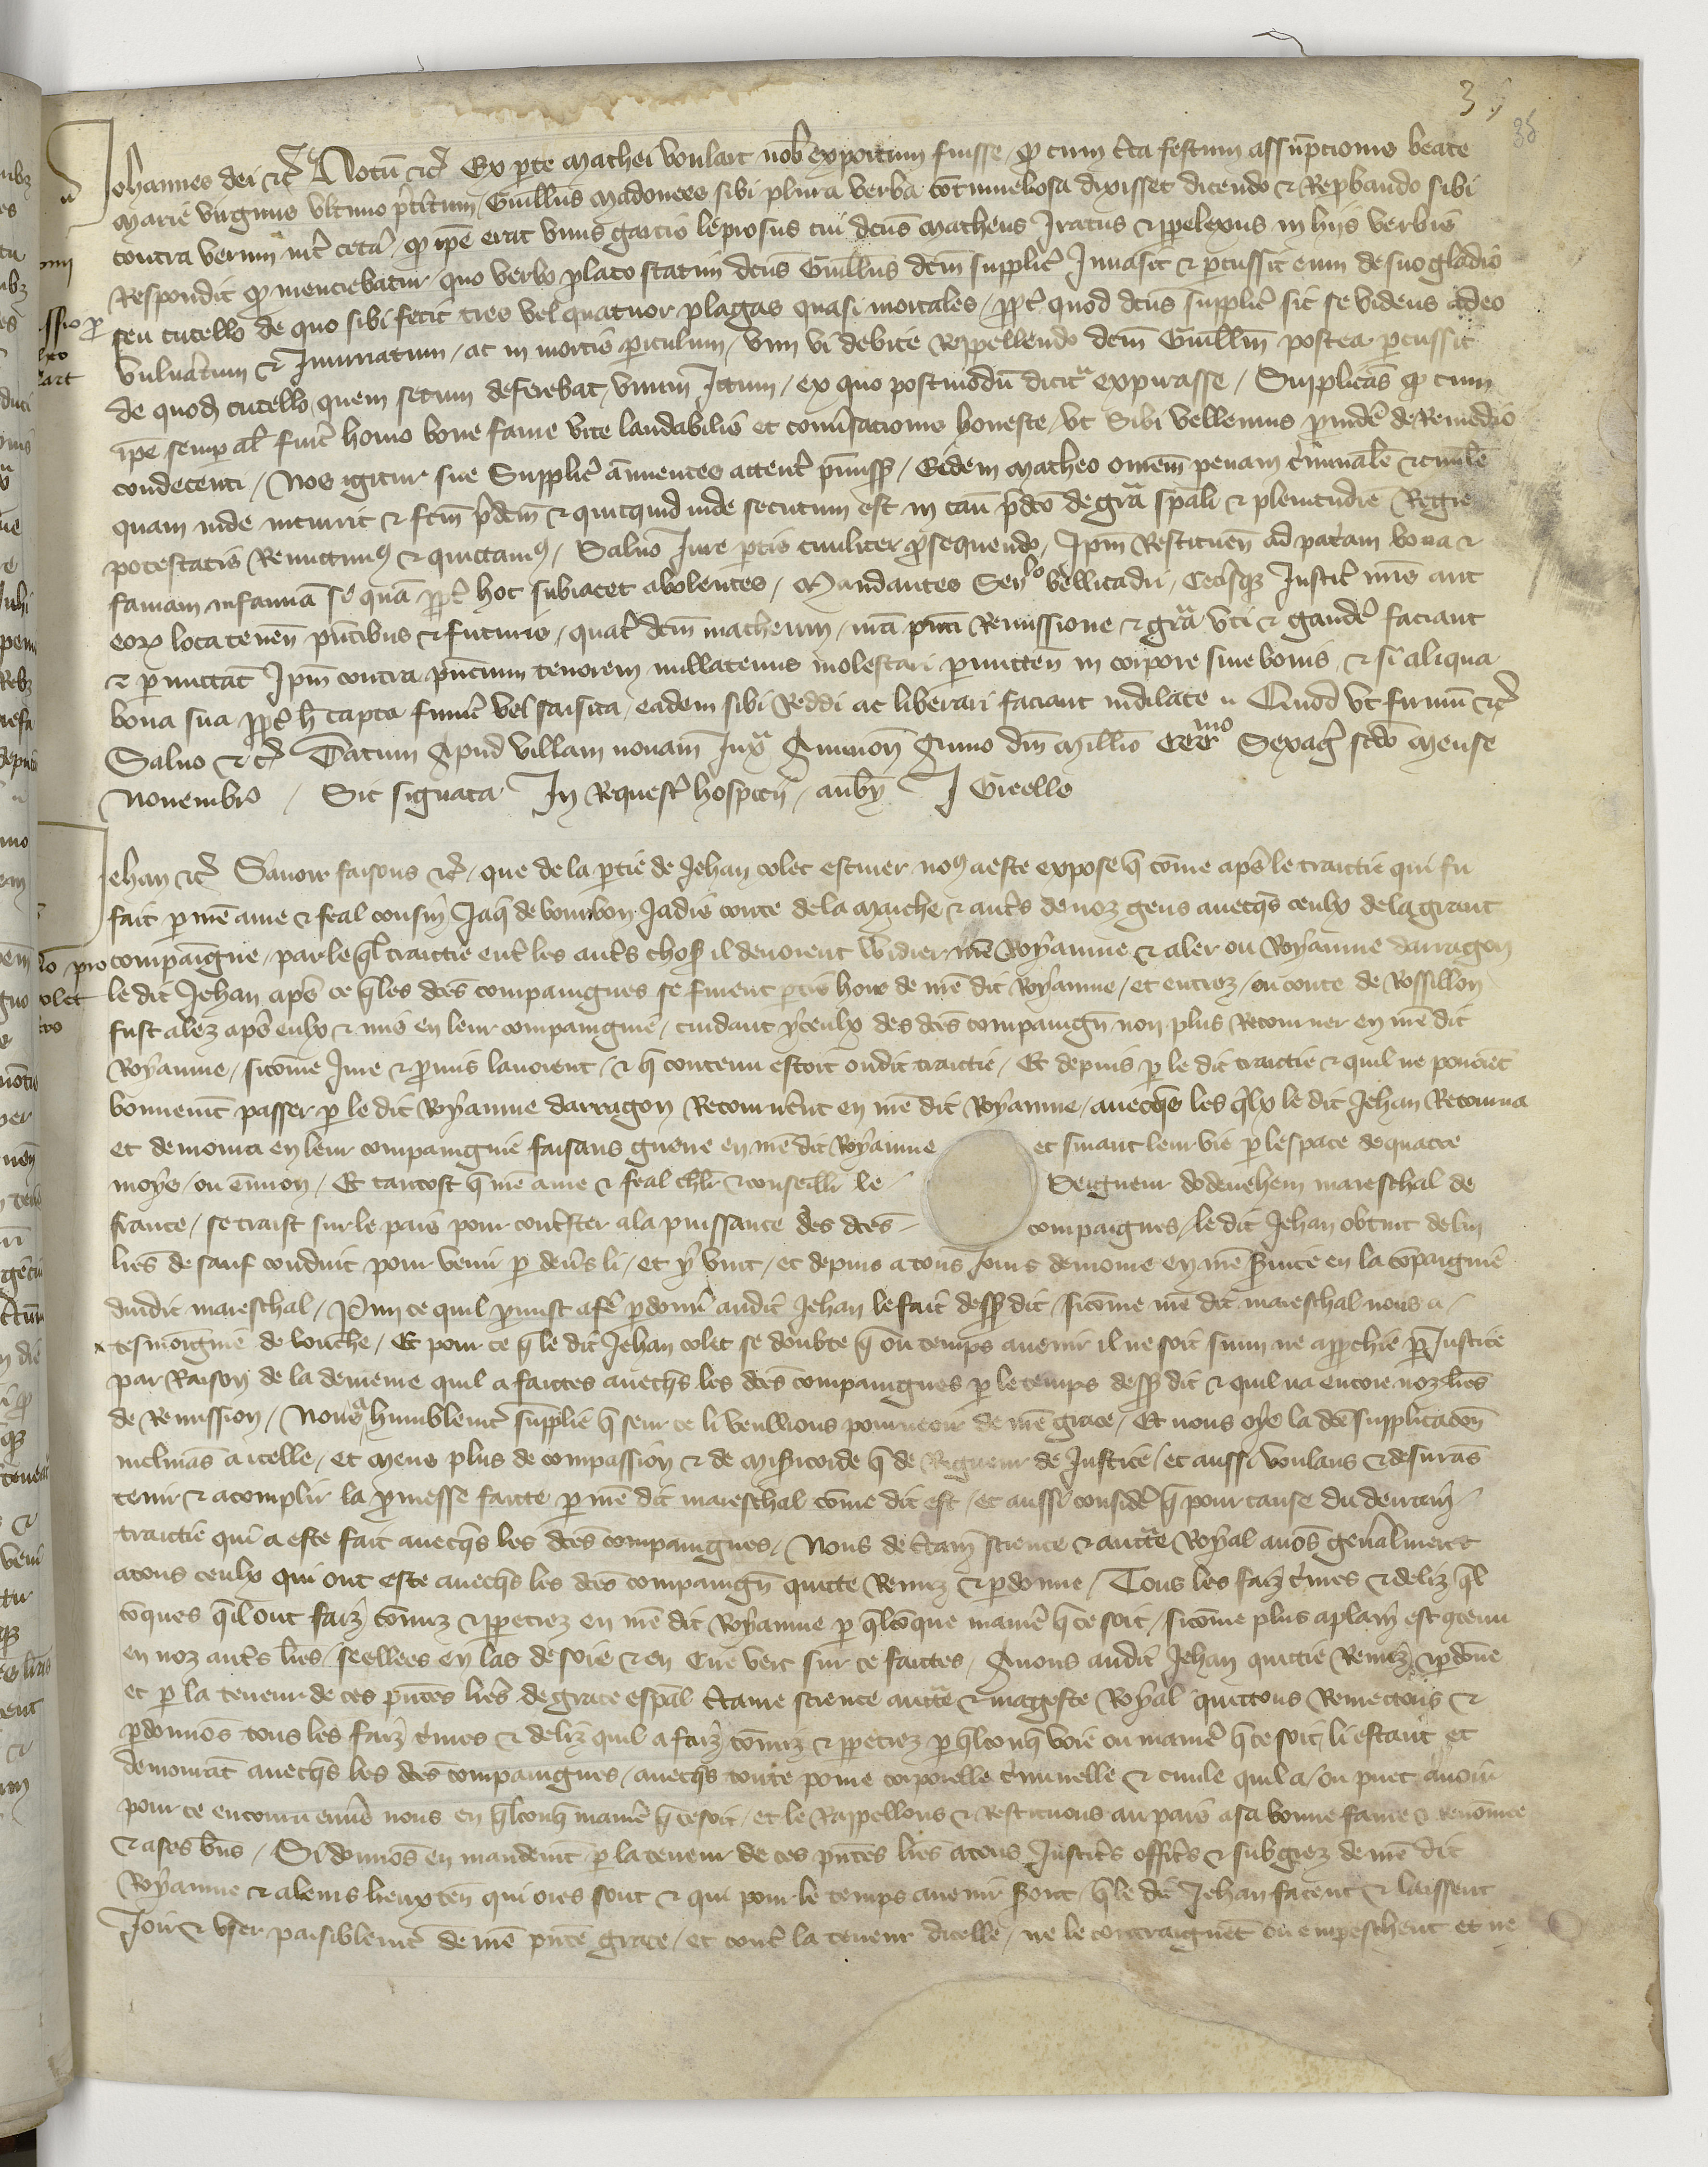 39
38
Johannes dei etc̃ Notũ etc̃ Ex ꝑte Mathei voulart nob̃ expositum fuisse / ꝙ cum c̃ca festum assũpcionis beate
Marie virginis ultimo p̃ter̃itum / Guill̃us Madonees sibi plura verba cõtumeliosa dixisset dicendo et Reꝓbando sibi
contra verum int̃ cetã / ꝙ ip̃e erat unus garcio leprosus cui dc̃us Matheus Iratus et ꝑplexus in hiis verbis
Respondit ꝙ menciebatur quo verbo ꝓlato statim dc̃us Guill̃us dc̃m supplic̃ Inuasit et ꝑcussit eum de suo gladio
seu cutello de quo sibi fecit tres vel quatuor plagas quasi mortales / ꝓpt̃ quod dc̃us supplic̃ sic se videns adeo
vulnãtum et Iniuriatum / ac in mortis ꝑiculum / vim vi debite Reppellendo dc̃m Guill̃m postea ꝑcussit
de quod̃ cutello quem secum deferebat / unum Ictum / ex quo postmodũ dicit̃ expirasse / Supplicãs ꝙ cum
ip̃e semꝑ al̃ fuit̃ homo bone fame vite laudabilis et conũsacionis honeste / ut Sibi vellemus ꝓuidẽ de Remedio
condecenti / Nos igitur sue Supplic̃ ãnuentes attent̃ p̃miss̃ / Eidem Matheo omẽm penam c̃iminalẽ et ciuilẽ
quam inde incurrit et fc̃m p̃dc̃m et quicquid inde secutum est in cãu p̃dco de gr̃a sp̃ali et plenitudiẽ Regie
potestatis Remittimꝰ et quittamꝰ / Saluo Iure ꝑtis ciuiliter ꝓsequendo / Ip̃m Restituen̄ ad pat̃am bona et
famam infamiã sĩ quã ꝓpt̃ hoc subiacet abolentes / Mandantes Sen̄lo bellicadri / Cet̃isqꝫ Iustic̃ nr̃is aut
eoꝝ locatenen̄ pñtibus et futuris / quat̃ dc̃m matheum / nr̃a pñti Remissione et gr̃a uti et gaudẽ faciant
et ꝑmittãt Ip̃m contra pñcium tenorem nullatenus molestari ꝑmitten̄ in corpore siue bonis / et si aliqua
bona sua ꝓpt̃ h̃ capta fuerĩt vel saisita / eadem sibi Reddi ac liberari faciant indilate // Quod ut firmũ etc̃
Saluo etc̃ Datum Apud villam nouam Iuxa Auinion̄ Anno dñi Millĩo CCCmo Sexag̃ scd̃o Mense
Nouembr̃ / Sic signata In Request̃ hospicii / anb̃y J Greelle
Jehan etc̃ Sauoir faisons etc̃ / que de la ꝑtie de Jehan colet escuier noꝰ a este expose q̃ cõme apꝰs le traictie qui fu
fait ꝑ nr̃e ame et feal cousin̄ Jaq̃ de bourbon Jadis conte de la marche et aut̃s de noz gens auecq̃s ceulx de la grant
compaĩgne / par le q̃l traictie ent̃ les aut̃s chos̃ il deuoient widier nr̃e Royaume et aler ou Royaume darragon
le dit Jehan apꝰs ce q̃ les dc̃es compaingnes se furent ꝑtis hors de nr̃e dit Royaume / et entrez / ou conte de Rossillon
fust alez apꝰs eulx et mis en leur compaingnie / cuidant q̃ ceulx des dc̃es compaingñ non plus Retourner en nr̃e dit
Royaume / sicõme Iure et ꝓmis lauoient / et q̃ contenu estoit oudit traictie / Et depuis ꝑ le dit traictie et quil ne pouoiẽt
bonnemẽt passer ꝑ le dit Royaume darragon Retournẽrent en nr̃e dit Royaume / auecques les q̃lx le dit Jehan Retourna
et demoura en leur compaingnie faisans guerre en nr̃e dit Royaume et siuant leur vie ꝑ lespace de quatre
moys / ou enuiron / Et tantost q̃ nr̃e ame et feal chl̃r et conseilli̇ le Seigneur dodenehem mareschal de
france / se traist sur le pais pour contr̃ster a la puissance des dc̃es compaignes / le dit Jehan obtint de lui
lr̃es de sauf conduit pour venir ꝑ deuers li / et y vint / et depuis a tous Jours demoure en nr̃e ẜuice en la cõpaignie
dudit mareschal / Parmi ce quil ꝓmist a fẽ ꝑdonñ audit Jehan le fait dess̃ dit / sicõme nr̃e dit mareschal nous a /
tesmoignie de bouche / Et pour ce q̃ le dit Jehan colet se doubte q̃ ou temps auenir il ne soit suiui ne aꝓchie ꝑ Iustice
par Raison de la demeure quil a faictes auecq̃s les dc̃es compaingnes ꝑ le temps dess̃ dit et quil na encore noz lr̃es
de Remission / Nous a humblemẽt supplie q̃ seur ce li veullions pourueoir de nr̃e grace / Et nous oye la dc̃e supplicacõn
inclinãs a icelle / et meus plus de compassion et de misericorde q̃ de Rigueur de Iustice / et aussi voulans et desirans
tenir et acomplir la ꝓmesse faicte ꝑ nr̃e dit mareschal cõme dit est / et aussi considẽ q̃ pour cause du derrain̄ /
traictie qui a este fait auecq̃s les dc̃es compaingnes / Nous de c̃taine science et auct̃e Royal auõs gen̄alment
a tous ceulx qui ont este auecq̃s les dc̃es compaingñ quitte Remiz et ꝑdonne / Tous les faiz c̃imes et deliz q̃l
cõques q̃ il ont faiz cõmiz et ꝑpetrez en nr̃e dit Royaume ꝑ q̃lcõque manie̊ q̃ ce soit / sicõme plus aplain̄ est ꝯtenu
en noz aut̃s lr̃es / seellees en las de soie et en Cire vert sur ce faictes / Auons audit Jehan quittie Remiz et ꝑdõne
et ꝑ la teneur de ces pñtes lr̃es de grace esp̃al c̃taine science auct̃e et mageste Royal quittons Remectons et
ꝑdonnõs tous les faiz c̃imes et deliz quil a faiz cõmiz et ꝑpetrez ꝑ q̃lconq̃ voie ou manie̊ q̃ ce soit / li estant et
demourãt auecq̃s les dc̃es compaingnes / auecq̃s toute poine corporelle c̃iminelle et ciuile quil a / ou puet auoir
pour ce encouru enuers nous en q̃lconq̃ manie̊ q̃ ce soit / et le Rappellons et Restituons au pais a sa bonne fame et renõmee
et a ses biẽs / Si donnõs en mandemẽt ꝑ la teneur de ces pñtes lr̃es a tous Iustic̃s offic̃s et subgiez de nr̃e dit
Royaume et a leurs lieuxten̄ qui ores sont et qui pour le temps auenir ẜont / q̃ le dit Jehan facent et laissent
Joir et user paisiblemẽt de nr̃e pñte grace / et cont̃ la teneur dicelle / ne le contraignẽt ou empeschent et ne